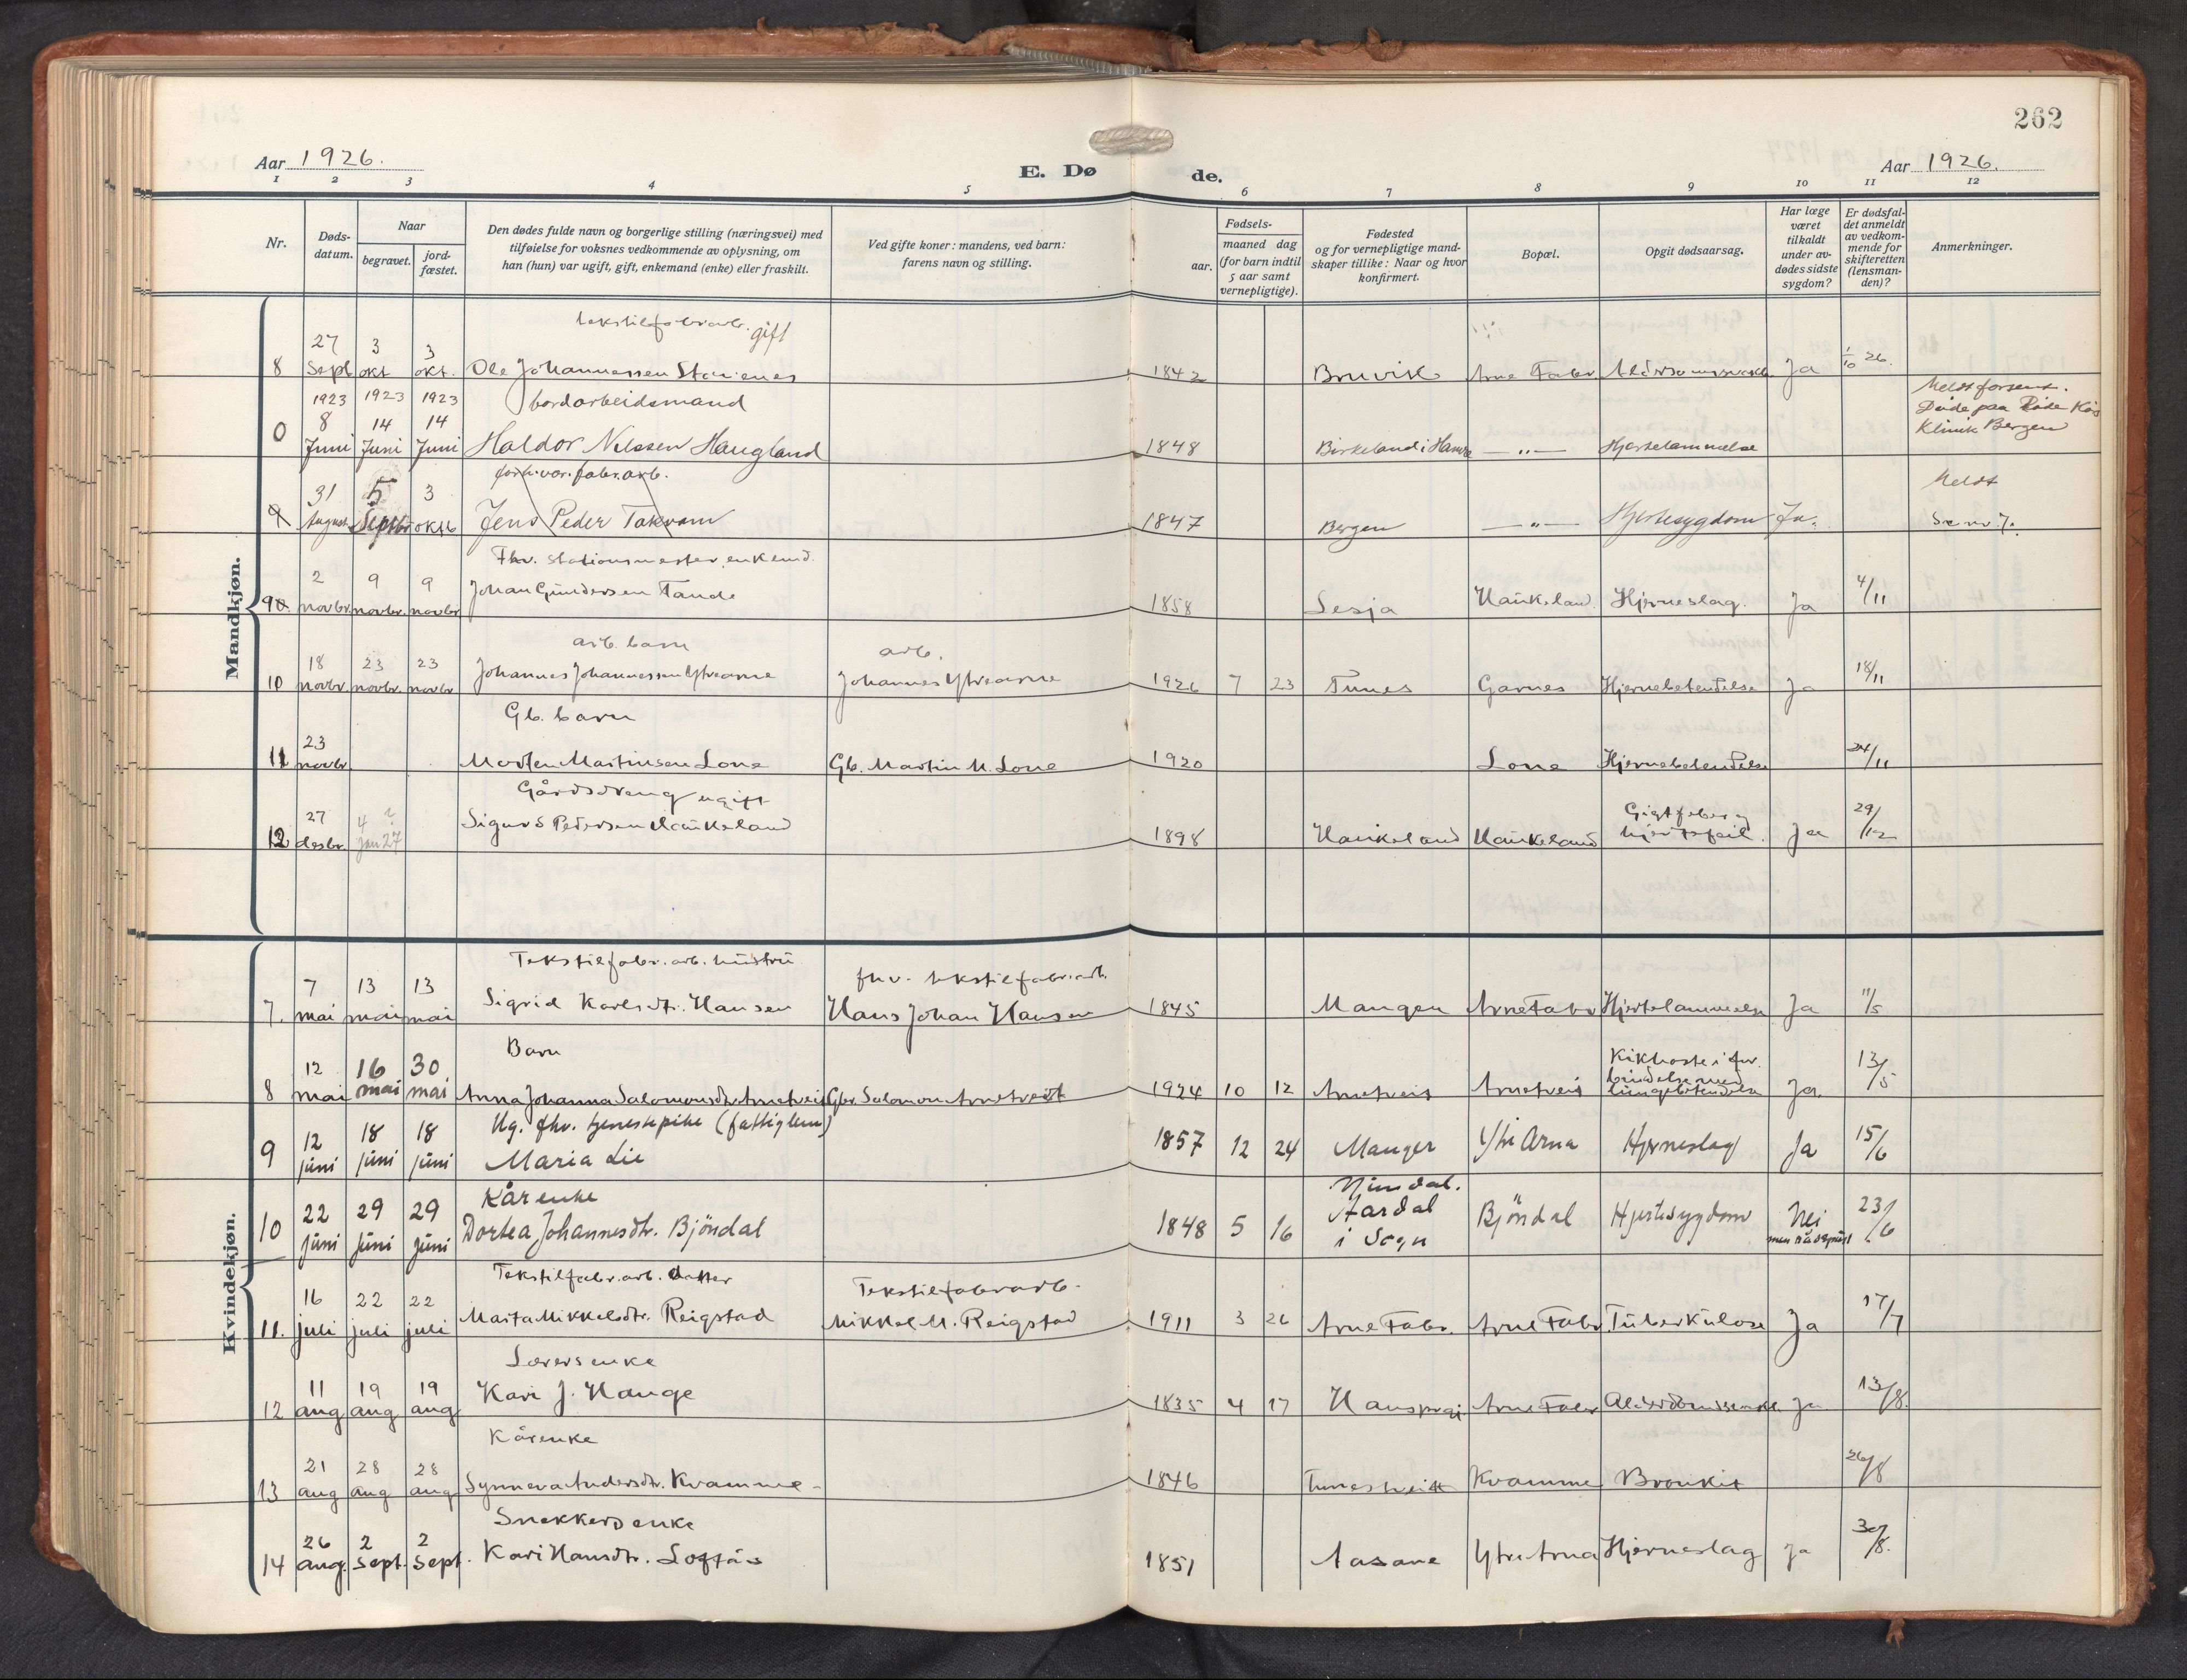 262
Aar 1926.
E. Dø
de.
Aar 1926.
1 2 3 4 5 6 7 8 9 10 11 12
Nr.
Døds-
datum.
Naar
begravet.
jord-
fæstet.
Den dødes fulde navn og borgerlige stilling (næringsvei) med
tilføielse for voksnes vedkommende av oplysning, om
han (hun) var ugift, gift, enkemand (enke) eller fraskilt.
Ved gifte koner: mandens, ved barn:
farens navn og stilling.
Fødsels-
aar.
maaned dag
(for barn indtil
5 aar samt
vernepligtige).
Fødested
og for vernepligtige mand-
skaper tillike: Naar og hvor
konfirmert.
Bopæl.
Opgit dødsaarsag.
Har læge
været
tilkaldt
under av-
dødes sidste
sygdom?
Er dødsfal-
det anmeldt
av vedkom-
mende for
skifteretten
(lensman-
den)?
Anmerkninger.
Mandkjøn.
tekstilfabrarb. gift
27 3 3
8 Sept okt okt. Ole Johannessen 1842 Bruvik Arne Fabr. Ja 1/10 26.
1923 1923 1923 jordarbeidsmand
8 14 14
0 Juni Juni Juni Haldor Nilssen Haugland 1848 Birkeland i Hamre —"— Hjertelammelse
Meldt forsent.
Døde paa Røde Kors
Klinik Bergen
forh.v. fabr.arb.
31 5 3
9 August Septbr oktb Jens Peder Takvam 1847 Bergen —"— Hjertesygdom Ja.
Meldt
Se nr 7.
Fhv. stationsmester, enkemd.
2 9 9
9 novbr. novbr. novbr Johan Gundersen Tande 1858 Lesja Haukeland Hjerneslag. Ja 4/11
arb. barn
arb.
18 23 23
10 novbr. novbr. novbr Johannes Johannessen Ytrearne Johannes Ytrearne 1926 7 23 Tunes Garnes Hjernebetendelse Ja 18/11
Gb. barn
23
11 novbr. Morten Martinsen Lone Gb. Martin M. Lone 1920 Lone Hjernebetendelse 24/11
Gårdsdreng ugift
27 4 ?
12 desbr. jan 27 Sigurd Pedersen Haukeland 1898 Haukeland Haukeland Gigtfeber og
hjertefeil. Ja 29/12
Kvindekjøn.
Tekstilfabr. arb. hustru
fhv. tekstilfabr.arb.
7 13 13
7. mai mai mai Sigrid Karlsdtr. Hansen Hans Johan Hansen 1845 Manger Arne Fabr Hjertelammelse Ja 11/5
Barn
12 16 30
8 mai mai mai Anna Johanna Salomonsdtr. Arnetveit Gbr. Salomon Arnetveit 1924 10 12 Arnetveit Arnetveit
Kikhoste i for-
bindelse med
lungebetendelse Ja. 13/5
Ug. fhv. tjenestepike (fattiglem)
12 18 18
9 juni juni juni Maria Lie 1857 12 24 Manger Ytre Arna Hjerneslag Ja 15/6
Kårenke
22 29 29
10 juni juni juni Dortea Johannesdtr. Bjöndal 1848 5 16
Aardal
i Sogn Bjöndal Hjertesygdom Nei
men rådspurt 23/6
Tekstilfabr. arb. datter
Tekstilfabrarb.
16 22 22
11. juli juli juli Marta Mikkelsdtr. Reigstad Mikkel M. Reigstad 1911 3 26 Arne Fabr. Arne Fabr. Tuberkulose Ja 17/7
Lærersenke
11 19 19
12 aug aug aug Kari J. Hauge 1835 4 17 Arne Fabr Alderdomssvakh. Ja 13/8.
Kårenke
21 28 28
13 aug aug aug Synneva Andersdtr. Kvamme 1846 Tunestveit Kvamme Bronkit 26/8
Snekkersenke
26 2 2
14 aug. Sept. Sept. Kari Hansdtr. Loftås 1851 Aasane Ytre Arna Hjerneslag Ja 30/8.